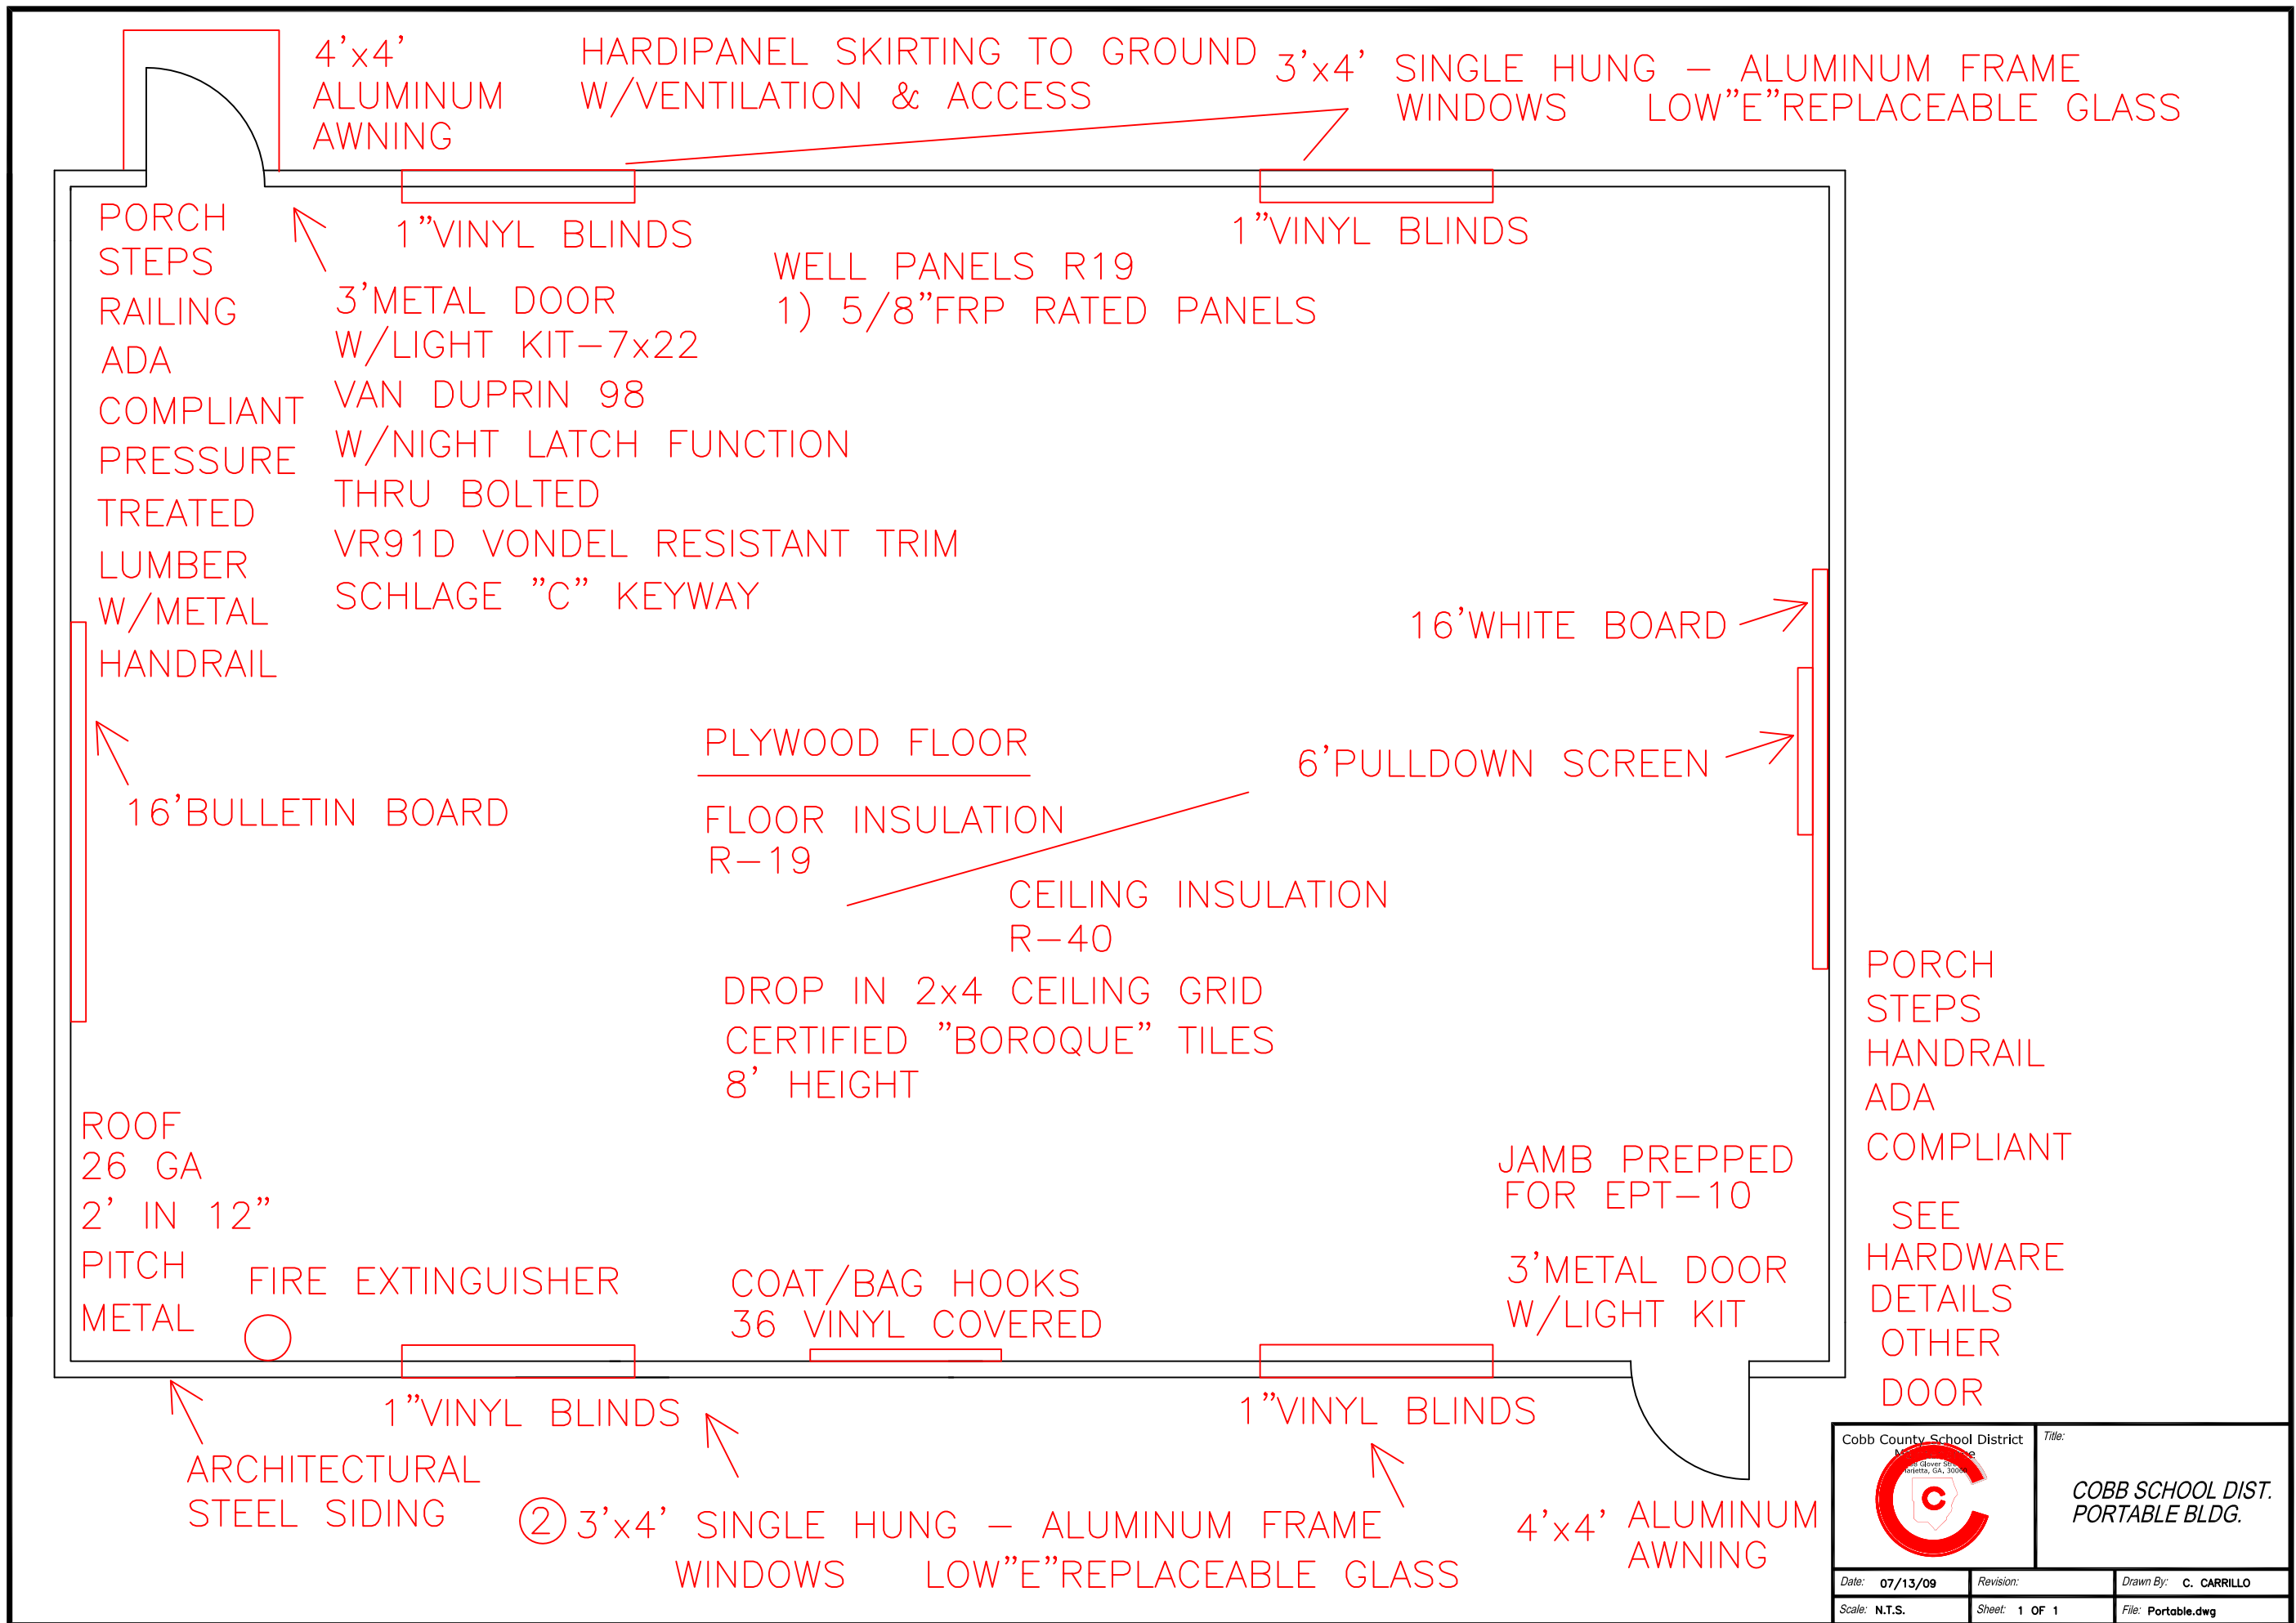 4'x4'
ALUMINUM
AWNING
HARDIPANEL SKIRTING TO GROUND
W/VENTILATION & ACCESS
3'x4' SINGLE HUNG – ALUMINUM FRAME
WINDOWS LOW"E"REPLACEABLE GLASS
PORCH
STEPS
RAILING
ADA
COMPLIANT
PRESSURE
TREATED
LUMBER
W/METAL
HANDRAIL
1"VINYL BLINDS
1"VINYL BLINDS
3'METAL DOOR
W/LIGHT KIT–7x22
VAN DUPRIN 98
W/NIGHT LATCH FUNCTION
THRU BOLTED
VR91D VONDEL RESISTANT TRIM
SCHLAGE "C" KEYWAY
WELL PANELS R19
1) 5/8"FRP RATED PANELS
16'WHITE BOARD
6'PULLDOWN SCREEN
16'BULLETIN BOARD
PLYWOOD FLOOR
FLOOR INSULATION
R–19
CEILING INSULATION
R–40
DROP IN 2x4 CEILING GRID
CERTIFIED "BOROQUE" TILES
8' HEIGHT
PORCH
STEPS
HANDRAIL
ADA
COMPLIANT
SEE
HARDWARE
DETAILS
OTHER
DOOR
ROOF
26 GA
2' IN 12"
PITCH
METAL
FIRE EXTINGUISHER
COAT/BAG HOOKS
36 VINYL COVERED
JAMB PREPPED
FOR EPT–10
3'METAL DOOR
W/LIGHT KIT
1"VINYL BLINDS
1"VINYL BLINDS
ARCHITECTURAL
STEEL SIDING
2 3'x4' SINGLE HUNG – ALUMINUM FRAME
WINDOWS LOW"E"REPLACEABLE GLASS
4'x4' ALUMINUM
AWNING
Cobb County School District
Glover
Marietta, GA,
C
Title:
COBB SCHOOL DIST.
PORTABLE BLDG.
Date: 07/13/09
Revision:
Drawn By: C. CARRILLO
Scale: N.T.S.
Sheet: 1 OF 1
File: Portable.dwg